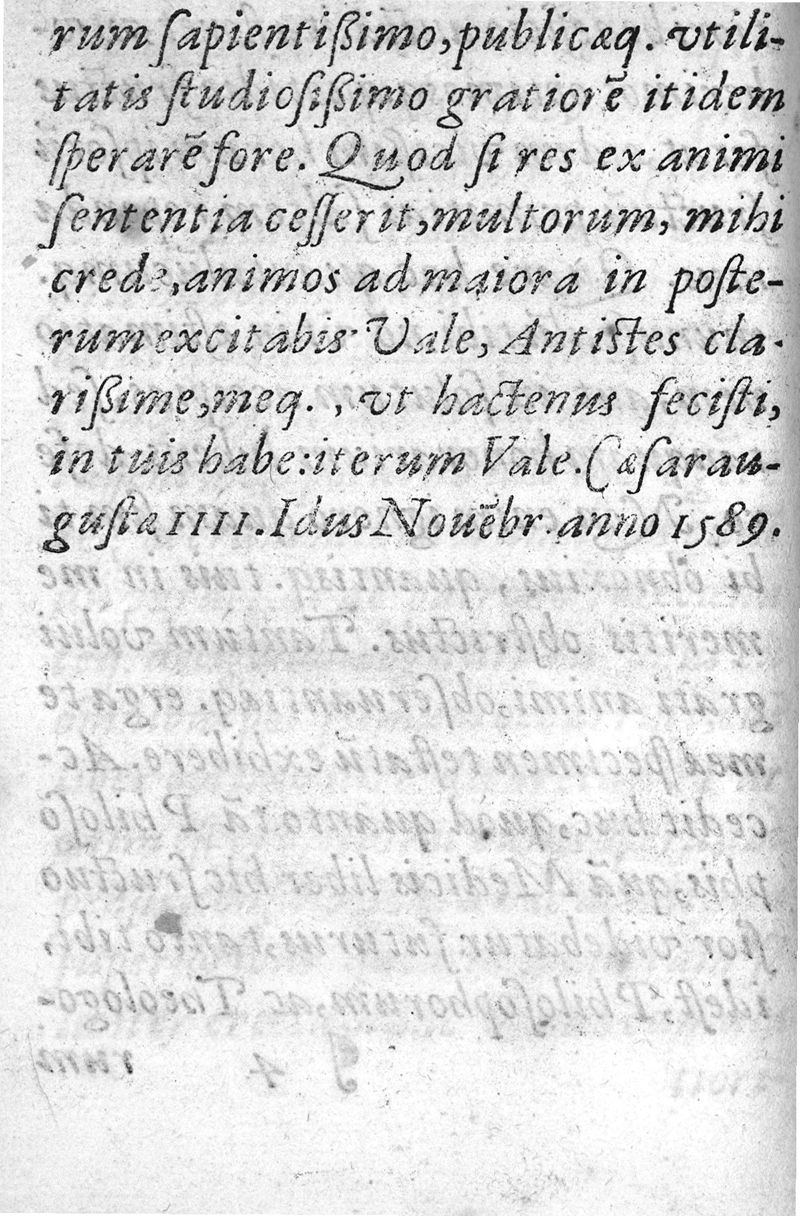 rum ſapientißimo, publicæq. vtili-
tatis ſtudioſißimo gratiorē itidem
ſperarē fore. Quod ſi res ex animi
ſententia ceſſerit, multorum, mihi
crede, animos ad maiora in poſte-
rum excitabis. Vale, Antistes cla-
rißime, meq., vt hactenus feciſti,
in tuis habe: iterum Vale. Cæſarau-
guſtæ IIII. Idus Nouēbr. anno 1589.